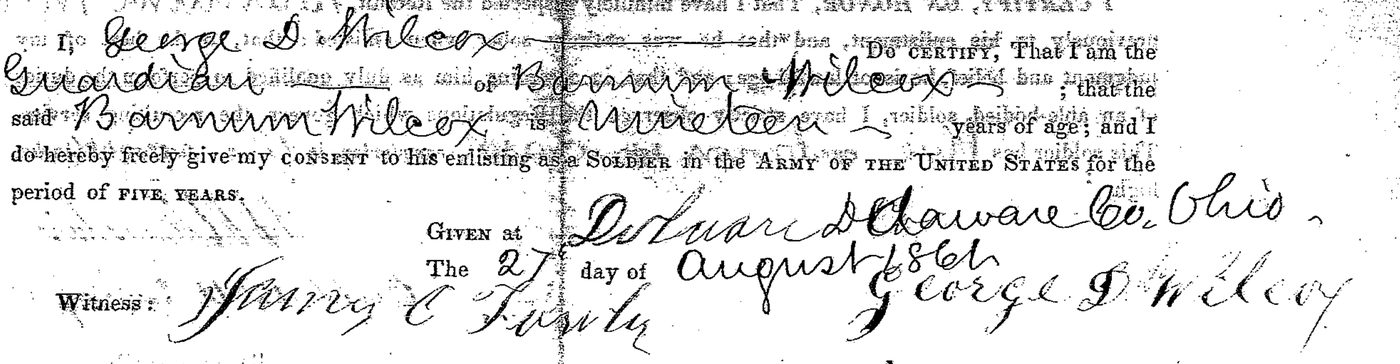 I, George D Wilcox Do certify, That I am the
Guardian of Barnum Wilcox ; that the
said Barnum Wilcox is Nineteen years of age; and I
do hereby freely give my CONSENT to his enlisting as a SOLDIER in the ARMY OF THE UNITED STATES for the
period of FIVE YEARS.
GIVEN at Delaware Co. Ohio
The 27 day of August 1861
Witness: James C George D Wilcox